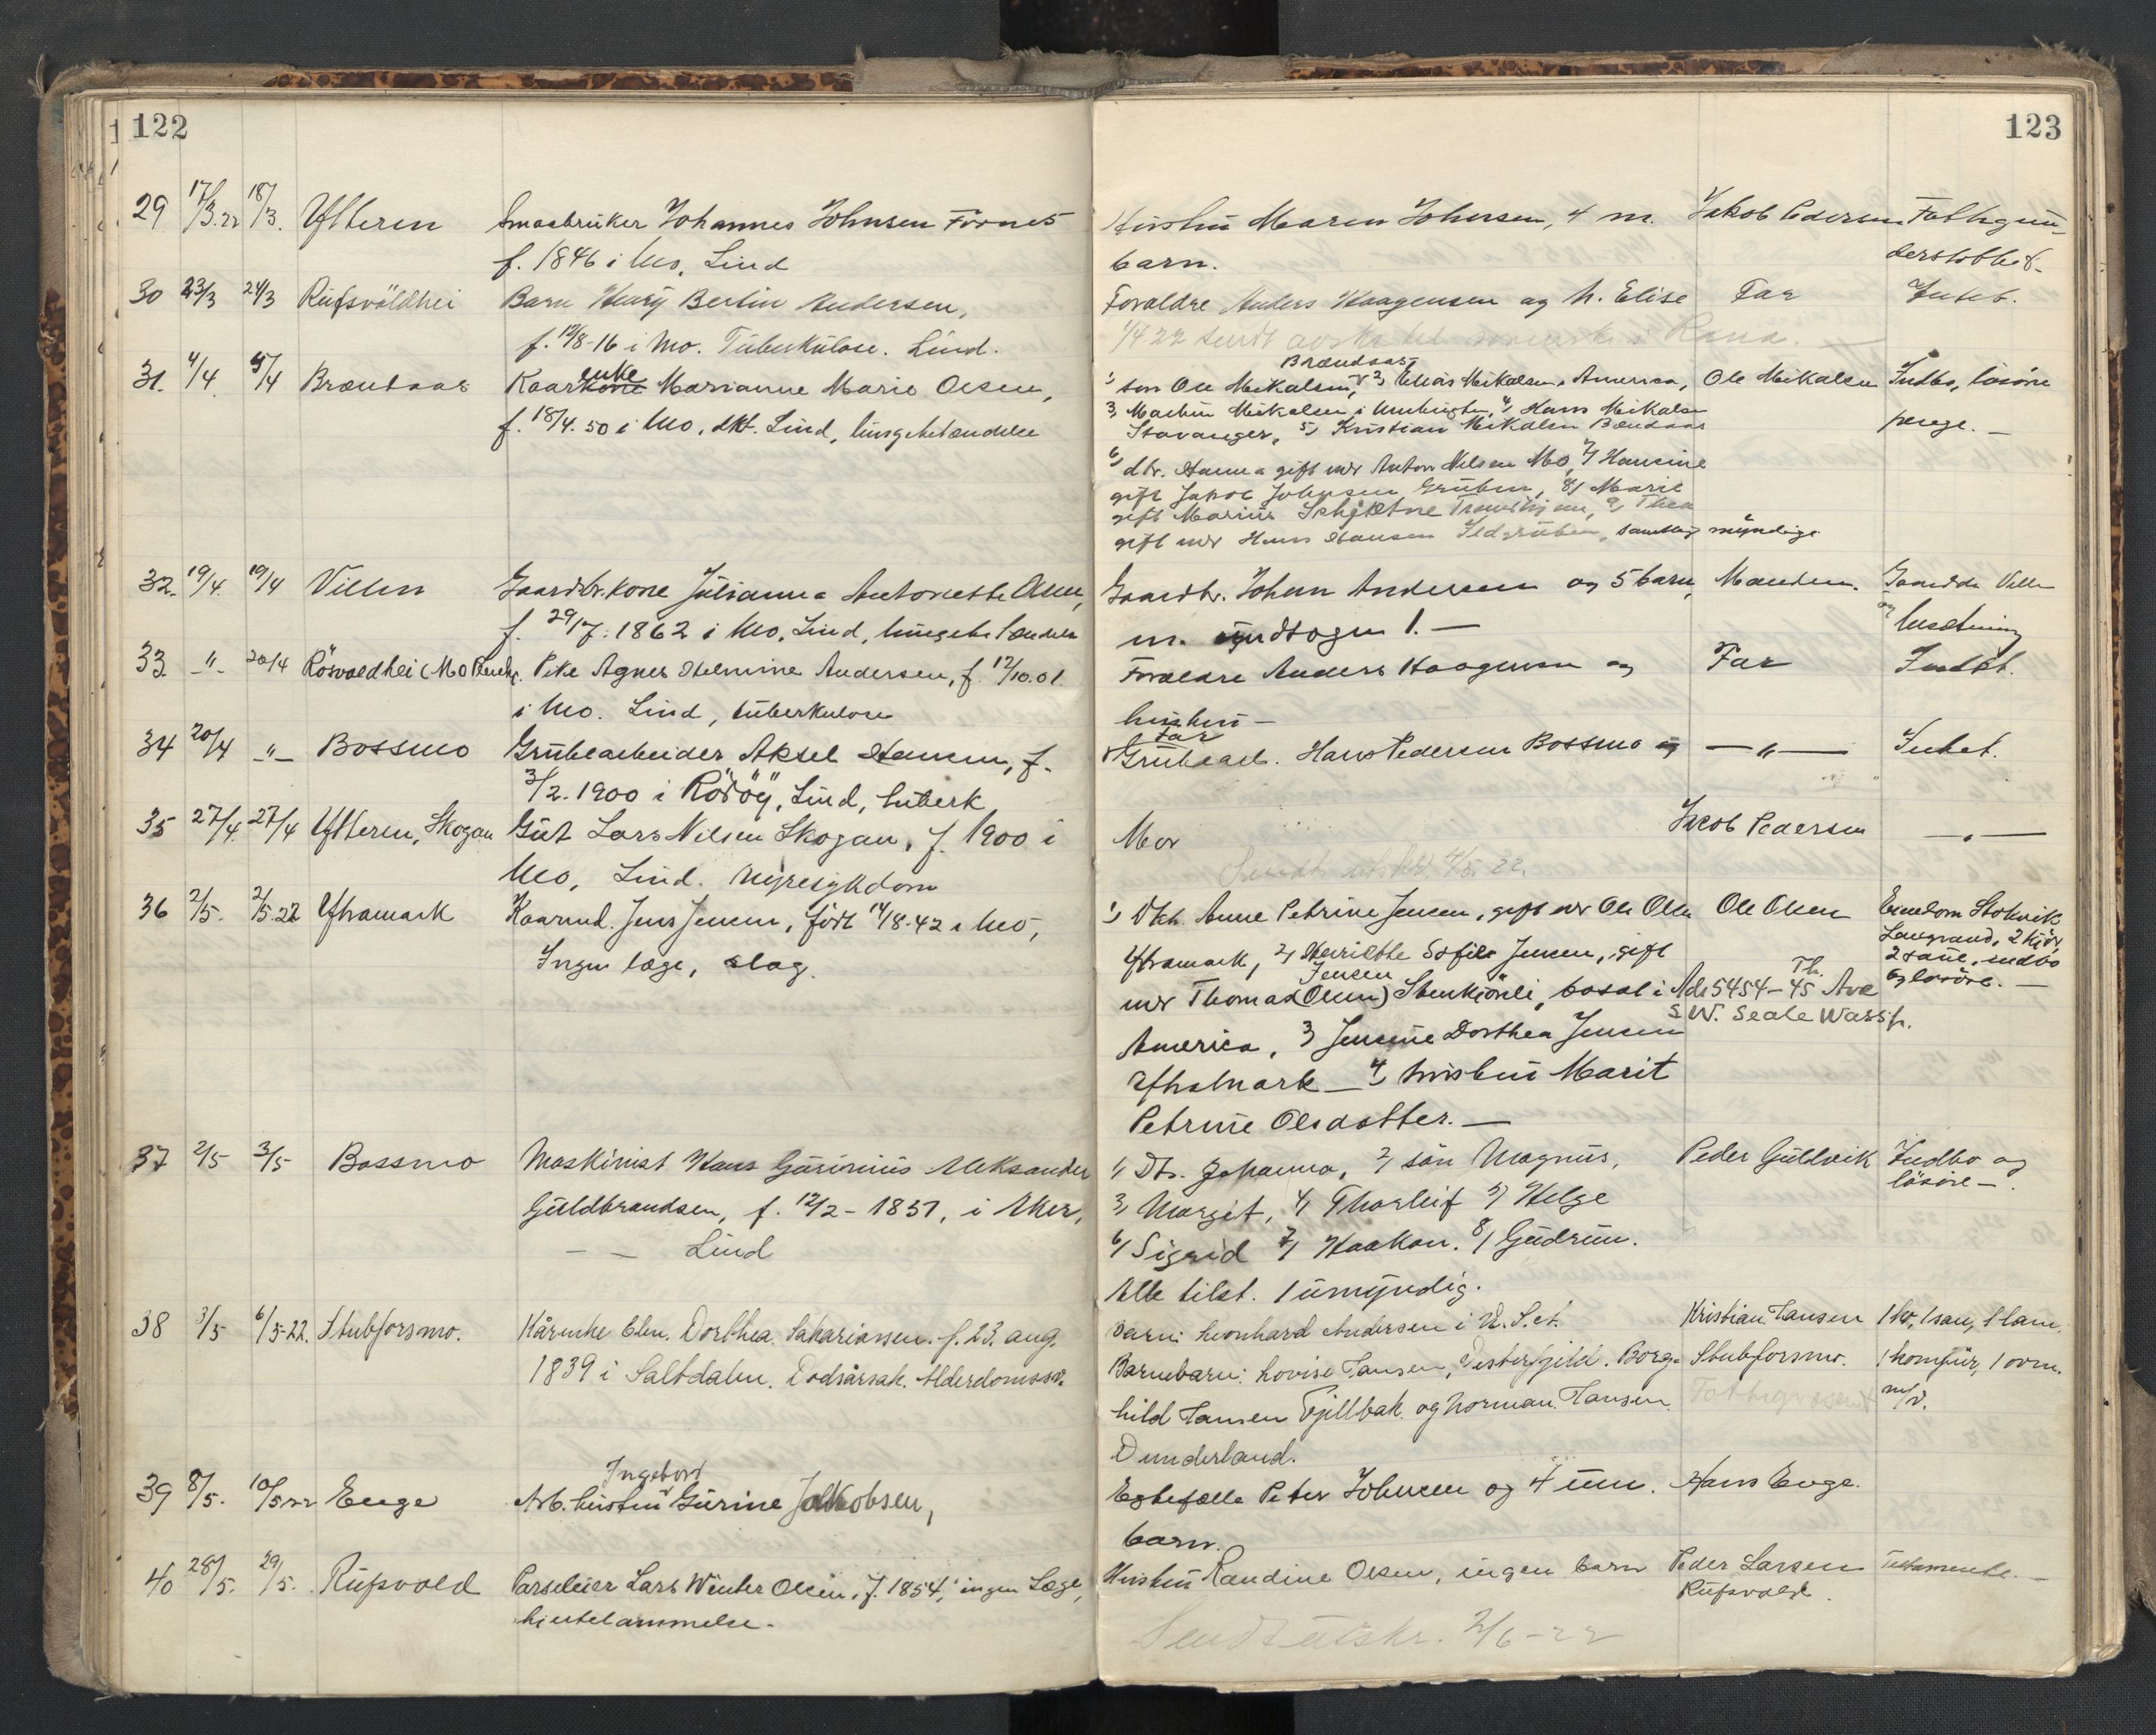 122
29 17/3.22 18/3. Ytteren Smaabruker Johannes Johnsen Fornes
f. 1846 i Mo, Lind
30 23/3 24/3 Rufsvoldhei Barn Henry Bertin Andersen,
f. 12/8-16 i Mo. Tuberkulose. Lind.
31. 4/4. 5/4 Brændaas Kaarkone enke Marianne Marie Olsen,
f. 18/4. 50 i Mo, dkt. Lind, lungebetændelse
32. 19/4. 19/4 Villen Gaardbr.kone Julianna Antonette Olsen,
f. 29/7. 1862 i Mo, Lind, lungebetændelse
33 -"- 20/4 Røsvoldhei (Mo Pike Agnes Helmine Andersen, f. 12/10.01.
i Mo. Lind, tuberkulose
34 20/4 -"- Bossmo Grubearbeider Aksel Hansen, f.
3/2. 1900 i Rödöy, Lind, tuberk.
35 27/4. 27/4 Ytteren, Skogan Gut Lars Nilsen Skogan, f. 1900 i
Mo, Lind. Nyresykdom
36 2/5. 2/5.22 Ytramark Kaarmd. Jens Jensen, født 14/8.42 i Mo,
Ingen læge, slag.
37 2/5 3/5 Bossmo Maskinist Hans Gurinius Aleksander
Guldbrandsen, f. 12/2-1857, i Aker,
— — Lind
38 3/5 6/5-22. Stubforsmo. Kårenke Elen Dorthea Sakariassen. f. 23. aug.
1839 i Saltdalen. Dødsårsak. Alderdomssv.
Ingebor
39 8/5. 10/5 22 Enge Arb. hustru Gurine Jakobsen,
40 28/5. 29/5. Rufsvold Parseleier Lars Winter Olsen, f. 1854, ingen Læge,
hjertelammelse.
123
Hustru Maren Johnsen, 4 m. Jakob Pedersen Fattigun-
barn. derstøttet.
Forældre Anders Haagensen og h. Elise Far Intet.
1/4 22 sendt Rana.
Brændaas
1) søn Ole Mikalsen, 2) Elias Mikalsen, America, Ole Mikalsen Indbo, løsøre
3) Martin Mikalsen i 4) Hans Mikalsen penge. —
Stavanger, 5) Kristian Mikalsen Brændaas
6) dtr. Hanna gift m/ Anton Nilsen Mo, 7) Hansine
gift Jakob Johnsen Gruben, 8) Marie
gift Marius Schjetne Trondhjem, 9) Thea
gift m/ Hans Hansen Sedgruben, samtlige myndige
Gaardbr. Johan Andersen og 5 barn, Manden. Gaarden Villen
m. undtagen 1. — og besetning
Forældre Anders Haagensen og Far Intet.
hustru —
Far
Grubearb. Hans Pedersen Bossmo og —"— Intet.
Mor Jacob Pedersen —"—
Sendt utskr. 4/5.22.
1) Dtr. Anne Petrine Jensen, gift m/ Ole Olsen Ole Olsen Eiendom Stokvik
Ytramark, 2) Henriette Sofie Jensen, gift Langrand, 2 kjør,
Jensen 2 saue, indbo
m/ Thomas (Olsen) Stenkjönli, bosat i Adr 5454 – 45 Th. Ave og løsøre. —
S.W. Seale Wash.
America, 3) Jensine Dorthea Jensen
Ytramark — 4) hustru Marit
Petrine Olsdatter. —
1) Dtr. Johanna, 2) søn Magnus, Peder Guldvik Indbo og
3) Margit, 4) Thorleif 5) Helge løsøre —.
6) Sigrid 7) Haakon. 8) Gudrun.
Alle tilst. 1 umyndig.
Barn: Leonhard Andersen i U.S.A. Kristian Hansen 1 ko, 1 sau, 1 lam,
Barnebarn: Lovise Hansen, Vesterfjeld. Borg- Stubforsmo. 1 komfur, 1 ovn.
hild Hansen Fjellbak. og Norman Hansen m/v.
Dunderland.
Egtefælle Peter Johnsen og 4 um. Hans Enge.
barn.
Hustru Randine Olsen, ingen barn Peder Larsen Testamente. —
Rufsvold.
Sendt utskr. 2/6-22